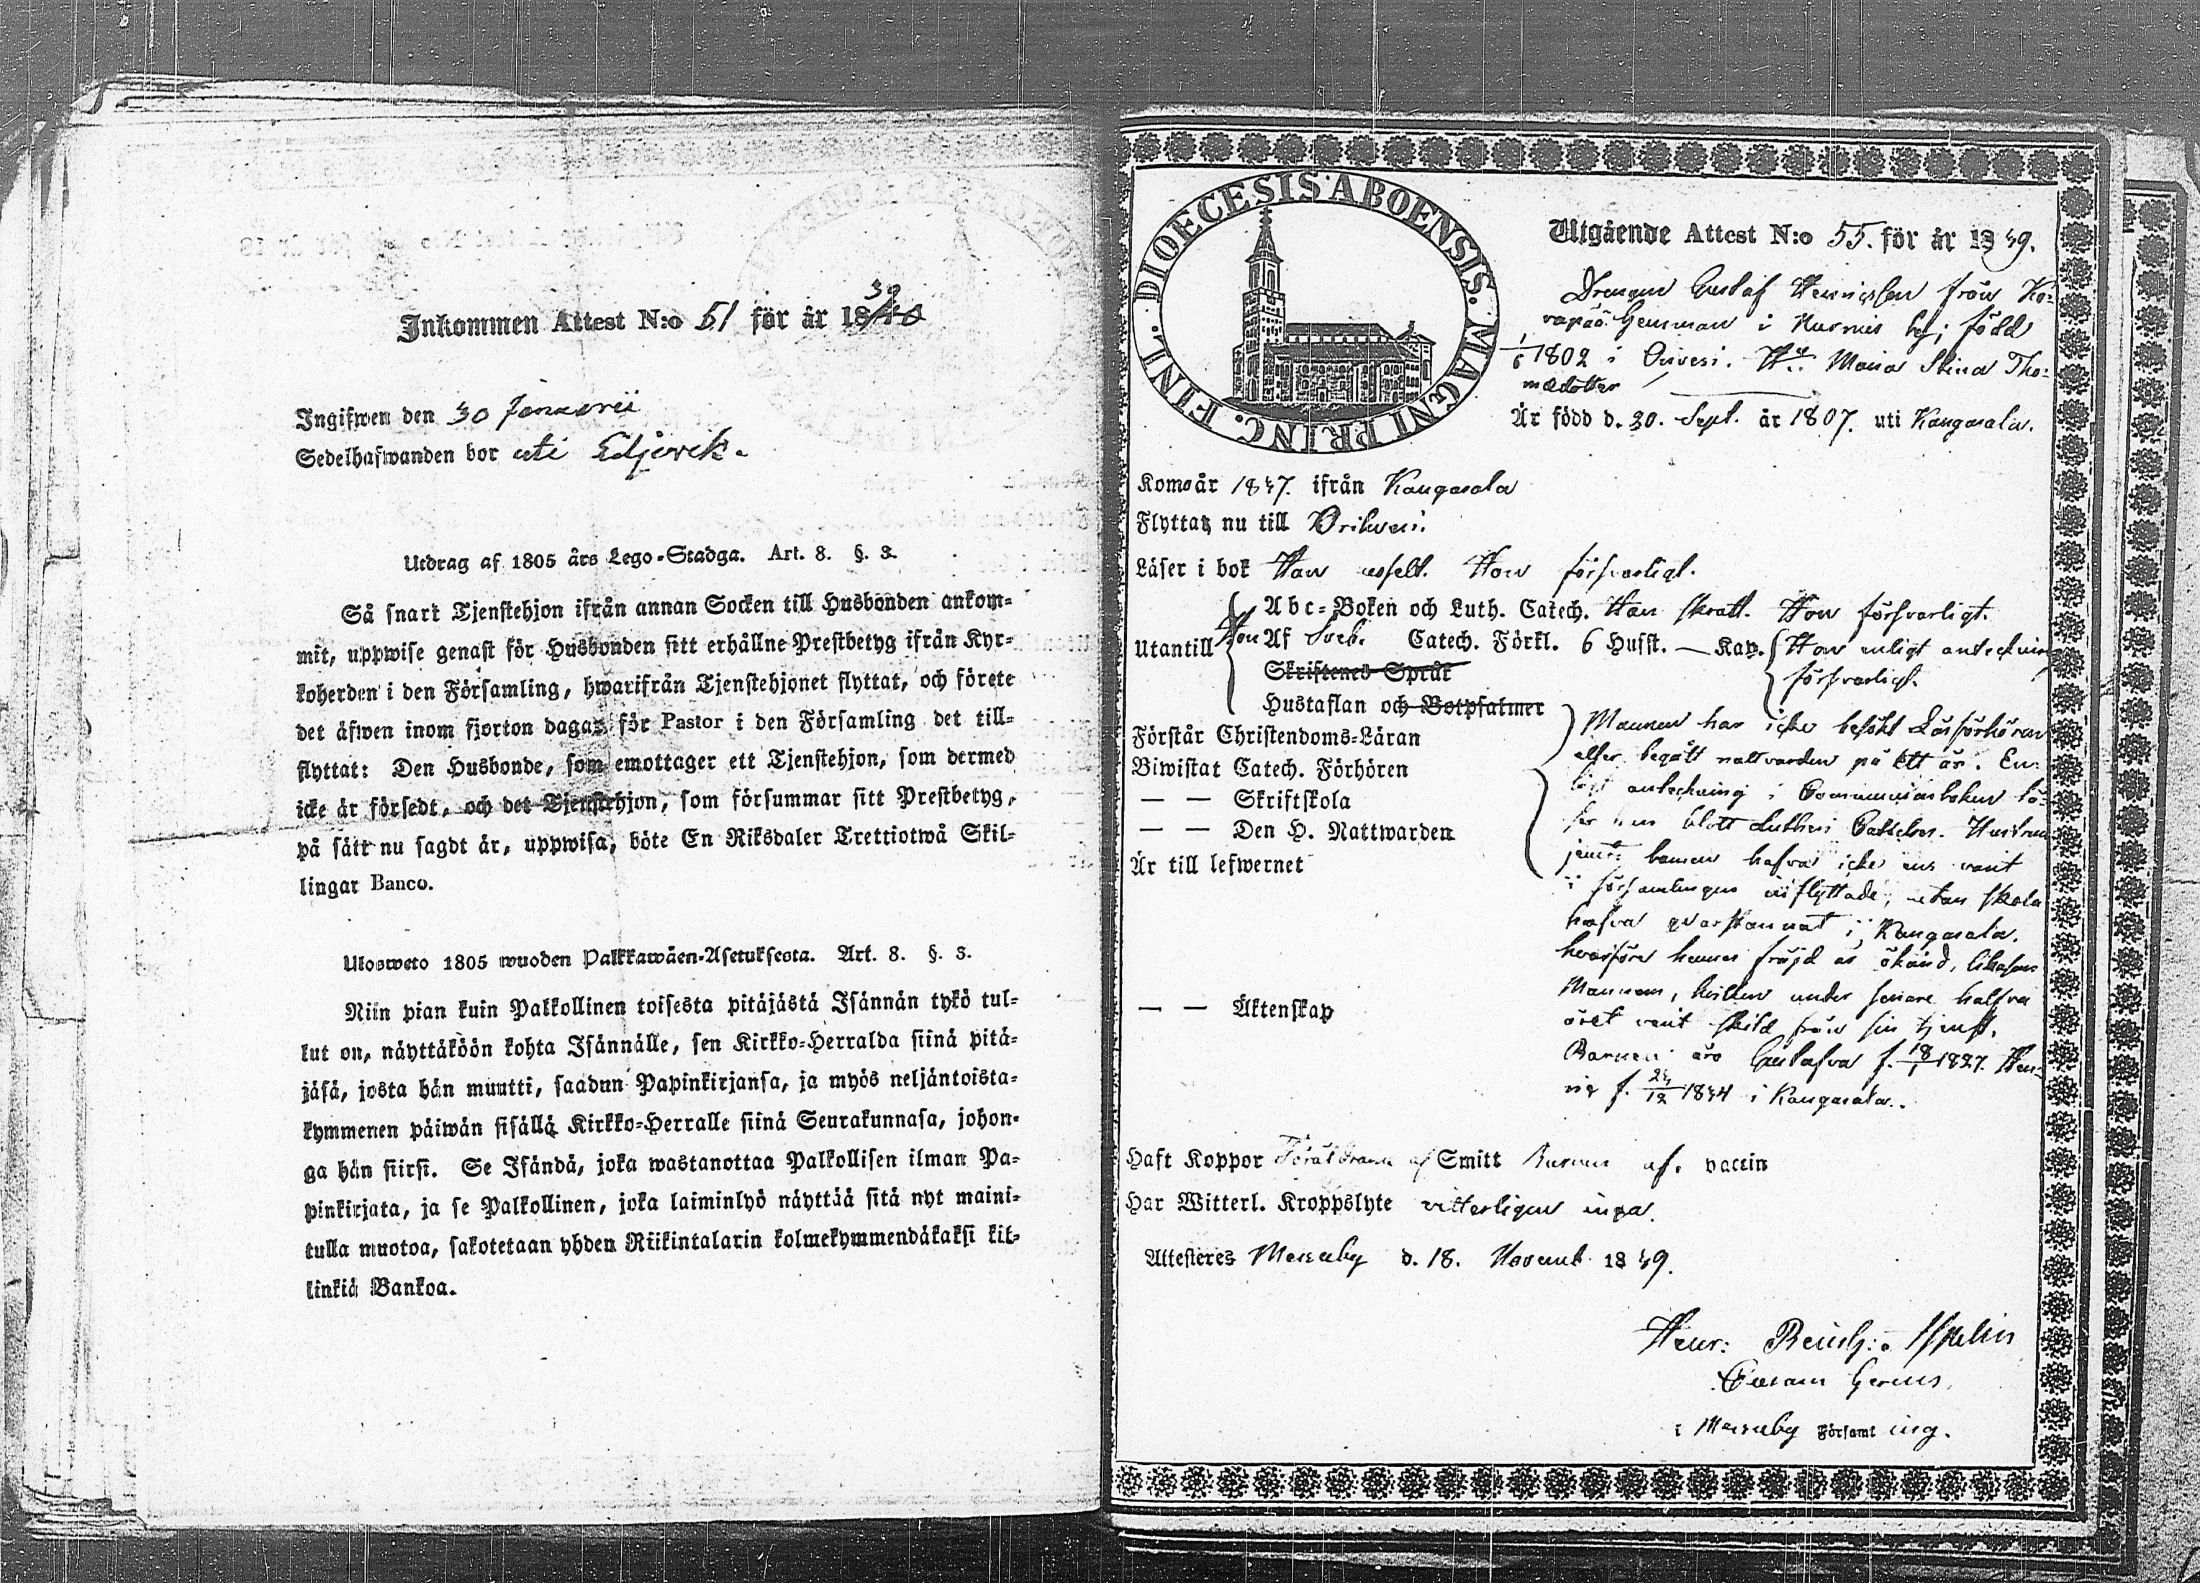 Inkommen Attest N:o 51 för år 1840
39
Ingifwen den 30 Januarii
Sedelhafwanden bor uti
Utdrag af 1805 års Lego-Stadga. Art. 8. §. 3.
Så snart Tjenstehjon ifrån annan Socken till Husbonden ankom-
mit, uppwise genast för Husbonden sitt erhållne Prestbetyg ifrån Kyr-
koherden i den Församling, hwarifrån Tjenstehjonet flyttat, och förete
det äfwen inom fjorton dagar för Pastor i den Församling det till-
flyttat: Den Husbonde, som emottager ett Tjenstehjon, som dermed
icke är försedt, och det Tjenstehjon, som försummar sitt Prestbetyg,
på sätt nu sagdt är, uppwisa, böte En Riksdaler Trettiotwå Skil-
lingar Banco.
Ulosweto 1805 wuoden Palkkawäen-Asetuksesta. Art. 8. §. 3.
Niin pian kuin Palkollinen toisesta pitäjästä Isännän tykö tul-
lut on, näyttäköön kohta Isännälle, sen Kirkko-Herralda siinä pitä-
jäsä, josta hän muutti, saadun Papinkirjansa, ja myös neljäntoista-
kymmenen päiwän sisällä Kirkko-Herralle siinä Seurakunnasa, johon-
ga hän siirsi. Se Isändä, joka wastanottaa Palkollisen ilman Pa-
pinkirjata, ja se Palkollinen, joka laiminlyö näyttää sitä nyt maini-
tulla muotoa, sakotetaan yhden Riikintalarin kolmekymmendäkaksi kil-
linkiä Bankoa.
DIOECESIS ABOENSIS. MAGNI PRINC. FINL.
Utgående Attest N:o 55. för år 1839.
Drengen Gustaf Henricsson från Ko-
i Nurmis by; född
1802 i Orivesi. Hu Maria Stina Tho-
mædotter
Är född d. 30. Sept. år 1807. uti Kangasala.
Kom år 1837. ifrån Kangasala
Flyttar nu till Orihvesi.
Läser i bok Han uselt. Hon försvarligt.
Abc-Boken och Luth. Catech. Han svagt. Hon försvarligt.
Utantill Hon Af Sveb. Catech. Förkl. 6 Husst. — Kap. Hon enligt anteckning
Skriftenes Språk försvarligt.
Hustaflan och Botpsalmer
Förstår Christendoms-Läran Mannen har icke besökt Läsförhören
Biwistat Catech. Förhören eller begått nattvarden på ett år. En-
— — Skriftskola ligt anteckning i Communionboken lä-
— — Den H. Nattwarden ser han blott Lutheri Catheches. Hustrun
Är till lefwernet jemte barnen hafva icke ens varit
i församlingen inflyttade, utan skola
hafva qvarstannat i Kangasala,
hvarföre hennes fräjd är okänd, likasom
Mannens, hvilken under senare halfva
— — Äktenskap året varit skild från sin tjenst.
Barnen äro Gustafva f. 18/1 1827. Hen-
ric f. 24/12 1834 i Kangasala.
Haft Koppor Föräldrarne af Smitt Barnen af. vaccin
Har Witterl. Kroppslyte vitterligen inga.
Attesteres Messuby d. 18. Novemb. 1839.
Henr:
i Messuby Församling.